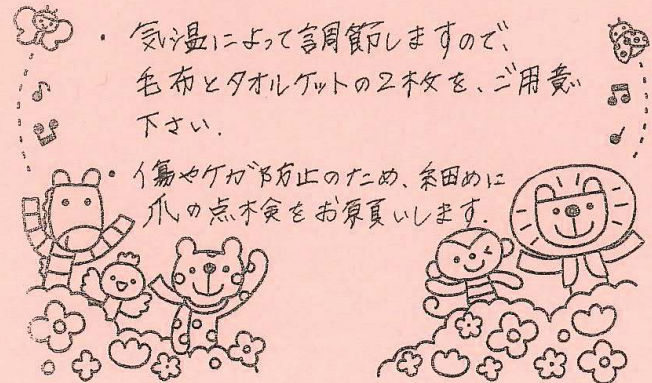 ・気温によって調節しますので、
毛布とタオルケットの2枚を、ご用意
下さい.
・傷やケガ防止のため、細めに
爪の点検をお願いします.